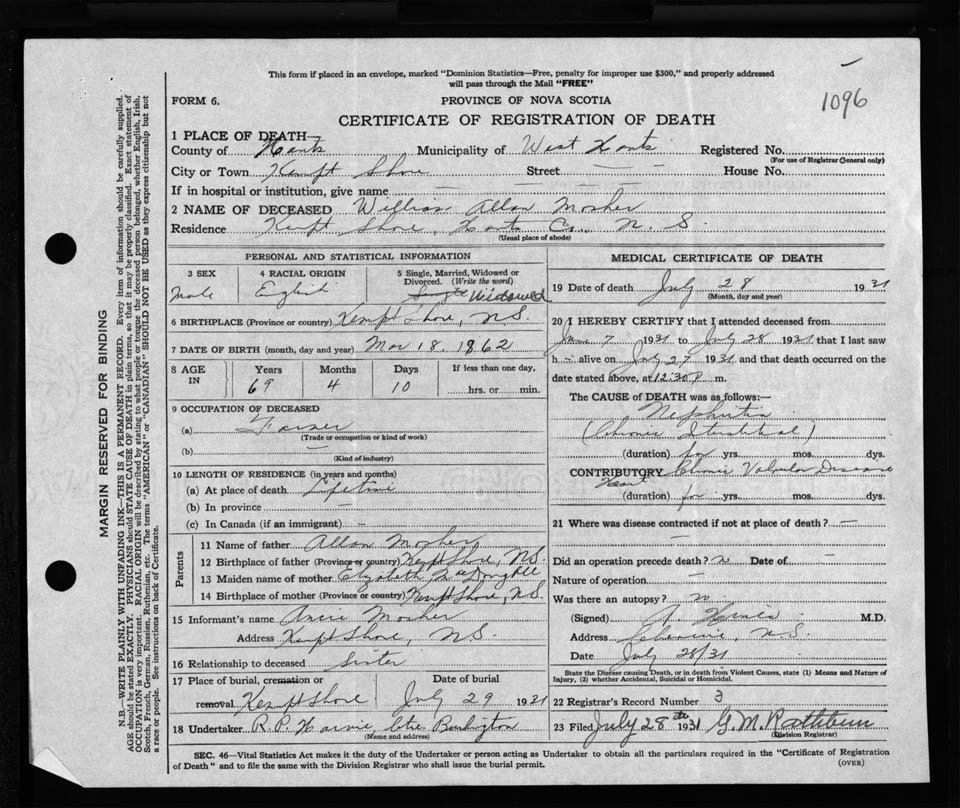 This form if placed in an envelope, marked "Dominion Statistics—Free, penalty for improper use $300," and properly addressed
will pass through the Mail "FREE"
1096
FORM 6.
PROVINCE OF NOVA SCOTIA
CERTIFICATE OF REGISTRATION OF DEATH
1 PLACE OF DEATH—
County of Hants Municipality of West Hants Registered No.
(For use of Registrar General only)
City or Town Kempt Shore Street — House No.
If in hospital or institution, give name — —
2 NAME OF DECEASED William Allan Mosher
Residence Kempt Shore, Hants Co., N. S.
(Usual place of abode)
PERSONAL AND STATISTICAL INFORMATION
3 SEX 4 RACIAL ORIGIN 5 Single, Married, Widowed or
Divorced. (Write the word)
Male English Single Widowed
6 BIRTHPLACE (Province or country) Kempt Shore, N.S.
7 DATE OF BIRTH (month, day and year) Mar 18, 1862
8 AGE IN Years Months Days If less than one day,
69 4 10 hrs. or min.
9 OCCUPATION OF DECEASED
(a) Farmer
(Trade or occupation or kind of work)
(b)
(Kind of industry)
10 LENGTH OF RESIDENCE (in years and months)
(a) At place of death Lifetime
(b) In province —
(c) In Canada (if an immigrant) —
Parents
11 Name of father Allan Mosher
12 Birthplace of father (Province or country) Kempt Shore, N.S.
13 Maiden name of mother Elizabeth
14 Birthplace of mother (Province or country) Kempt Shore, N.S.
15 Informant's name Annie Mosher
Address Kempt Shore, N.S.
16 Relationship to deceased Sister
17 Place of burial, cremation or Date of burial
removal Kempt Shore July 29 1931
18 Undertaker R. P. Harvie Burlington
(Name and address)
MEDICAL CERTIFICATE OF DEATH
19 Date of death July 28 1931
(Month, day and year)
20 I HEREBY CERTIFY that I attended deceased from
June 7 1931 to July 28 1931 that I last saw
h — alive on July 27 1931 and that death occurred on the
date stated above, at 12:30 P m.
The CAUSE of DEATH was as follows:—
Nephritis
(Chronic Interstitial)
(duration) for yrs. mos. dys.
CONTRIBUTORY Chronic Valvular Disease
Heart
(duration) for yrs. mos. dys.
21 Where was disease contracted if not at place of death? —
Did an operation precede death? no Date of —
Nature of operation —
Was there an autopsy? no
(Signed) M.D.
Address Cheverie, N.S.
Date July 28/31
State the Disease causing Death, or in death from Violent Causes, state (1) Means and Nature of
Injury, (2) whether Accidental, Suicidal or Homicidal.
22 Registrar's Record Number 3
23 Filed July 28th 1931 G. M. Rathbun
(Division Registrar)
SEC. 46—Vital Statistics Act makes it the duty of the Undertaker or person acting as Undertaker to obtain all the particulars required in the "Certificate of Registration
of Death" and to file the same with the Division Registrar who shall issue the burial permit.
(OVER)
MARGIN RESERVED FOR BINDING
N.B.—WRITE PLAINLY WITH UNFADING INK—THIS IS A PERMANENT RECORD. Every item of information should be carefully supplied.
AGE should be stated EXACTLY. PHYSICIANS should STATE CAUSE OF DEATH in plain terms, so that it may be properly classified. Exact statement of
OCCUPATION is very important. RACIAL ORIGIN will be described by stating to what people or tongue the deceased person belonged, whether English, Irish,
Scotch, French, German, Russian, Ruthenian, etc. The terms "AMERICAN" or "CANADIAN" SHOULD NOT BE USED as they express citizenship but not
a race or people. See instructions on back of Certificate.